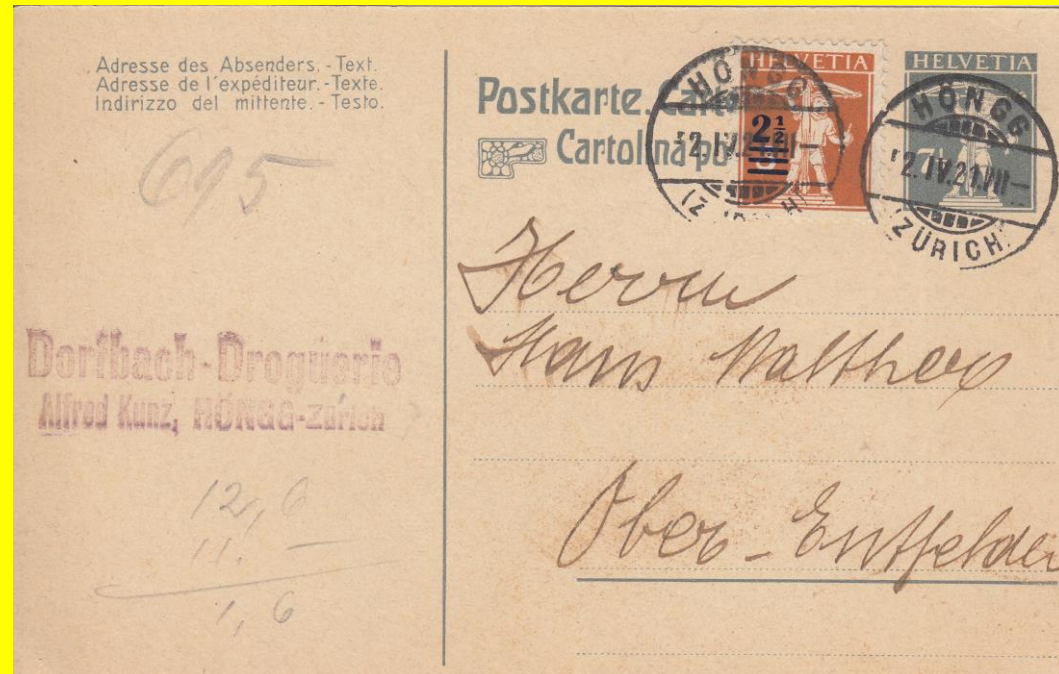 Adresse des Absenders. - Text.
Adresse de l'expéditeur. - Texte.
Indirizzo del mittente. - Testo.
695
Dorfbach-Droguerie
Alfred Kunz, HÖNGG-Zürich
12,6
11. –
1,6
Postkarte. Carte
Cartolina po
HELVETIA
2½
HÖNGG
12.IV.21.VII–
(ZÜRICH)
HELVETIA
7½
HÖNGG
12.IV.21.VII–
(ZÜRICH)
Herrn
Hans Walther
Ober-Entfelden